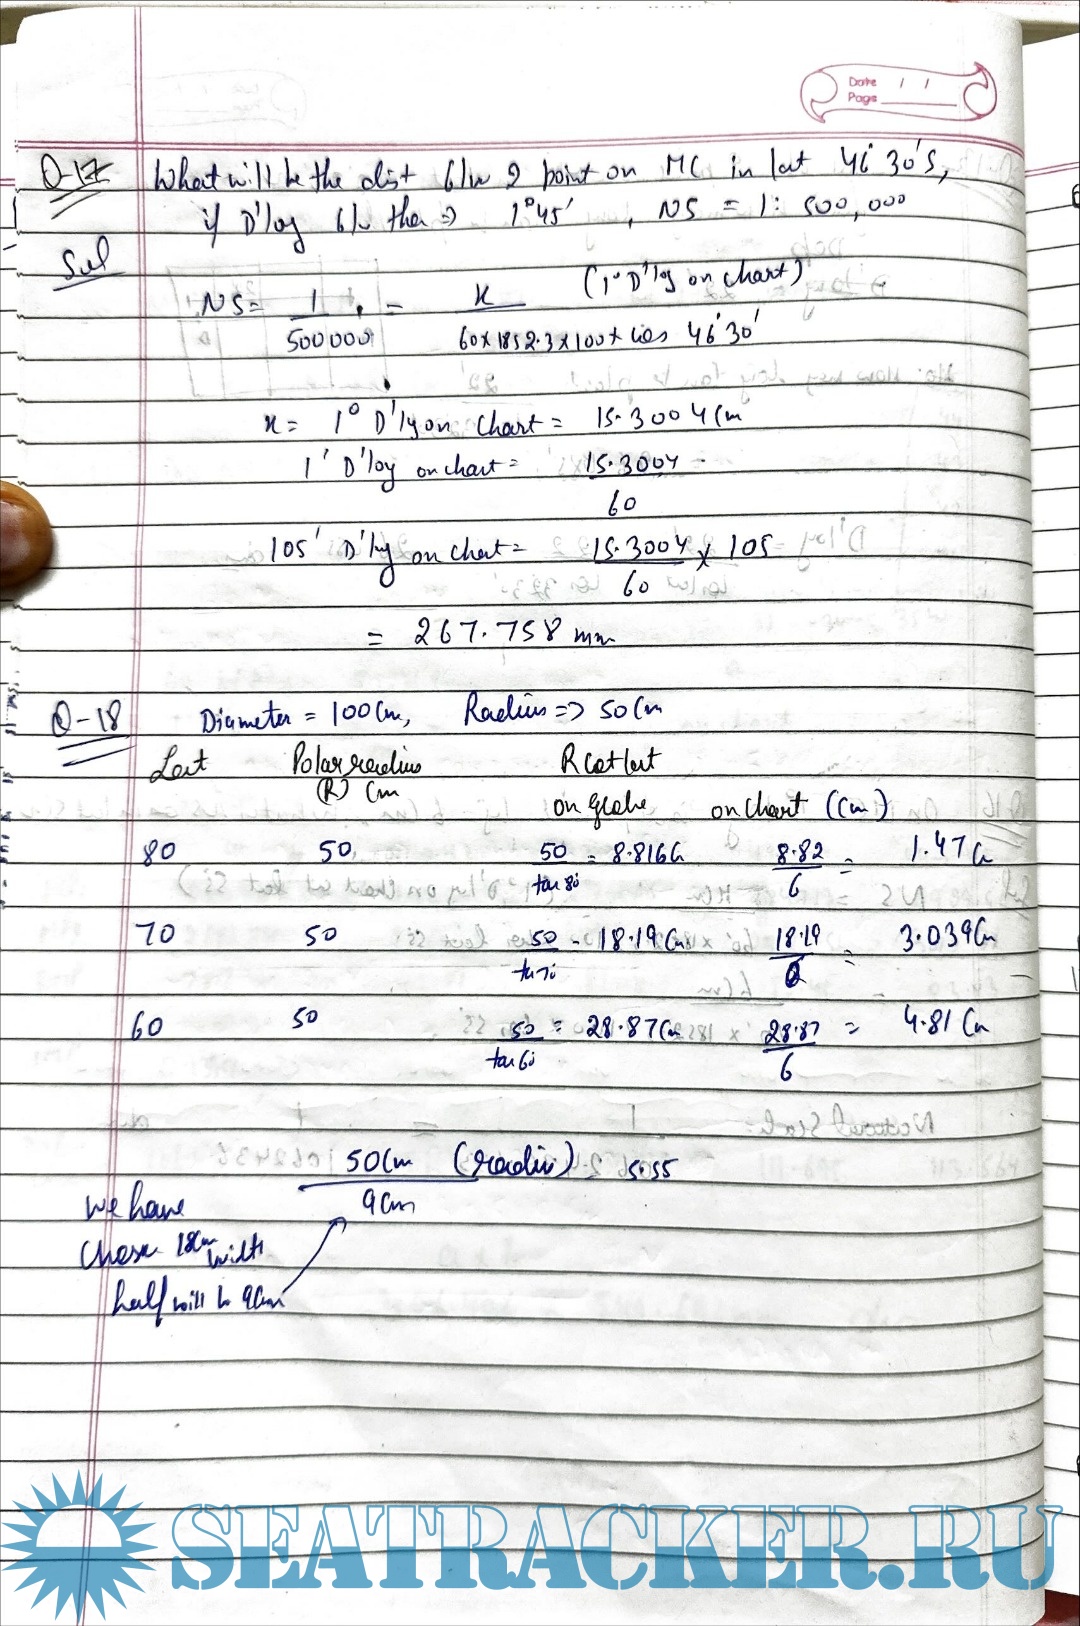 Date / /
Page
Q-17 What will be the dist b/w 2 point on MC in lat 46°30'S,
if D'log b/w then ⇒ 1°45', NS = 1: 500,000
Sol
NS = 1 / 500000 = x / 60x1852.3x100x cos 46°30' (1° D'log on chart)
x = 1° D'lg on chart = 15.3004 Cm
1' D'log on chart = 15.3004 / 60
105' D'lg on chart = 15.3004 / 60 x 105
= 267.758 mm
Q-18 Diameter = 100 Cm, Radius => 50 Cm
Lat Polar radius (R) Cm R cot lat
on globe on chart (Cm)
80 50 50 / tan 80 = 8.816 8.82 / 6 = 1.47
70 50 50 / tan 70 = 18.19 Cm 18.19 / 6 = 3.039 Cm
60 50 50 / tan 60 = 28.87 Cm 28.87 / 6 = 4.81 Cm
50 Cm (radius) / 9 Cm 5.55
We have
chosen 18cm width
half will b 9cm
SEATRACKER.RU